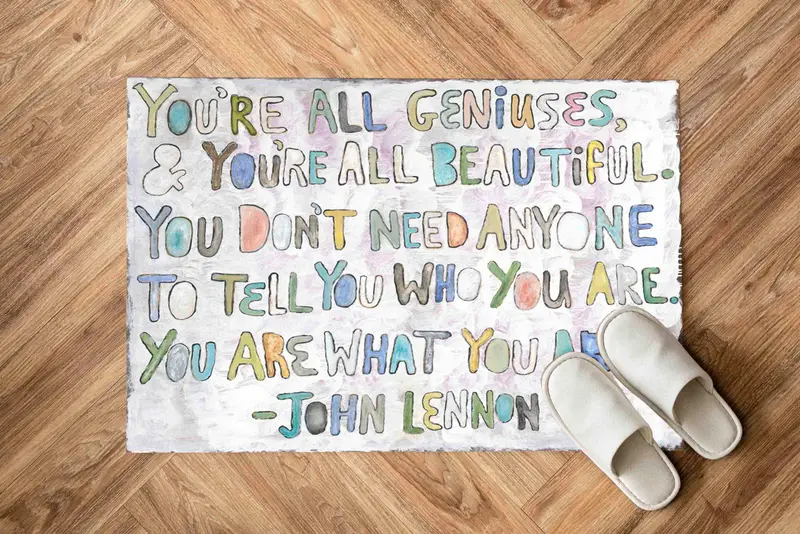 YOU'RE ALL GENiUSES,
& YOU'RE ALL BEAUTiFUL.
YOU DON'T NEED ANYONE
TO TELL YOU WHO YOU ARE.
YOU ARE WHAT YOU
-JOHN LENNON